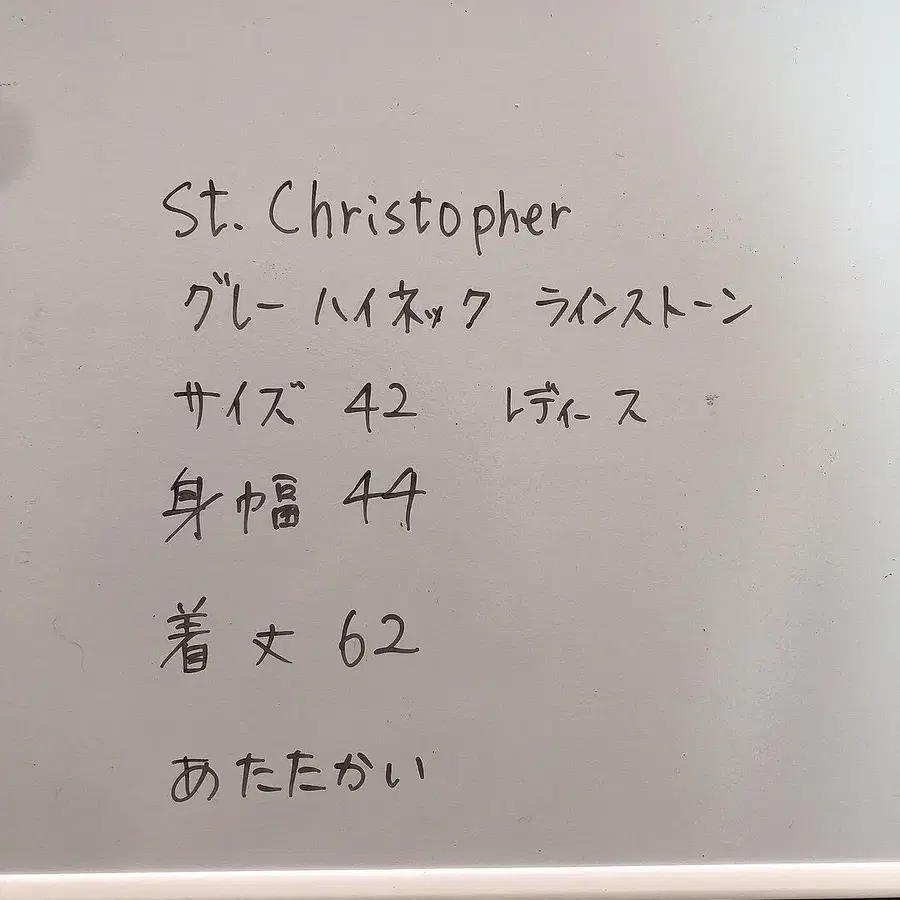 St. Christopher
グレー ハイネック ラインストーン
サイズ 42 レディース
身幅 44
着丈 62
あたたかい